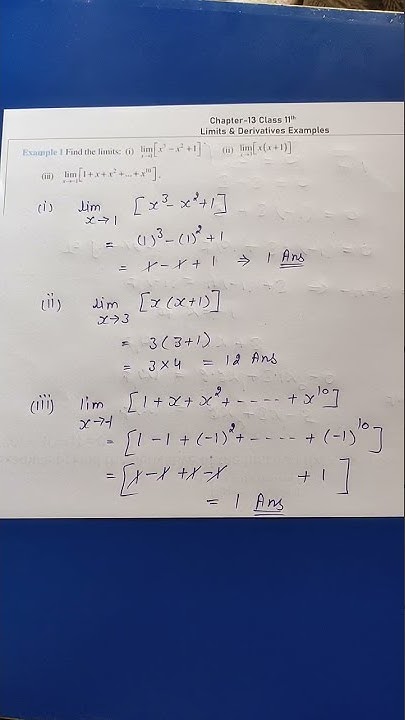 Chapter-13 Class 11th
Limits & Derivatives Examples
Example 1 Find the limits: (i) lim x→1 [x³ − x² + 1] (ii) lim x→3 [x(x+1)]
(iii) lim x→−1 [1 + x + x² + ... + x¹⁰].
(i) lim x→1 [x³ − x² + 1]
= (1)³ − (1)² + 1
= 1 − 1 + 1 ⇒ 1 Ans
(ii) lim x→3 [x(x+1)]
= 3(3+1)
= 3×4 = 12 Ans
(iii) lim x→−1 [1 + x + x² + ----- + x¹⁰]
= [1 − 1 + (−1)² + ----- + (−1)¹⁰]
= [1 − 1 + 1 − 1 + 1]
= 1 Ans